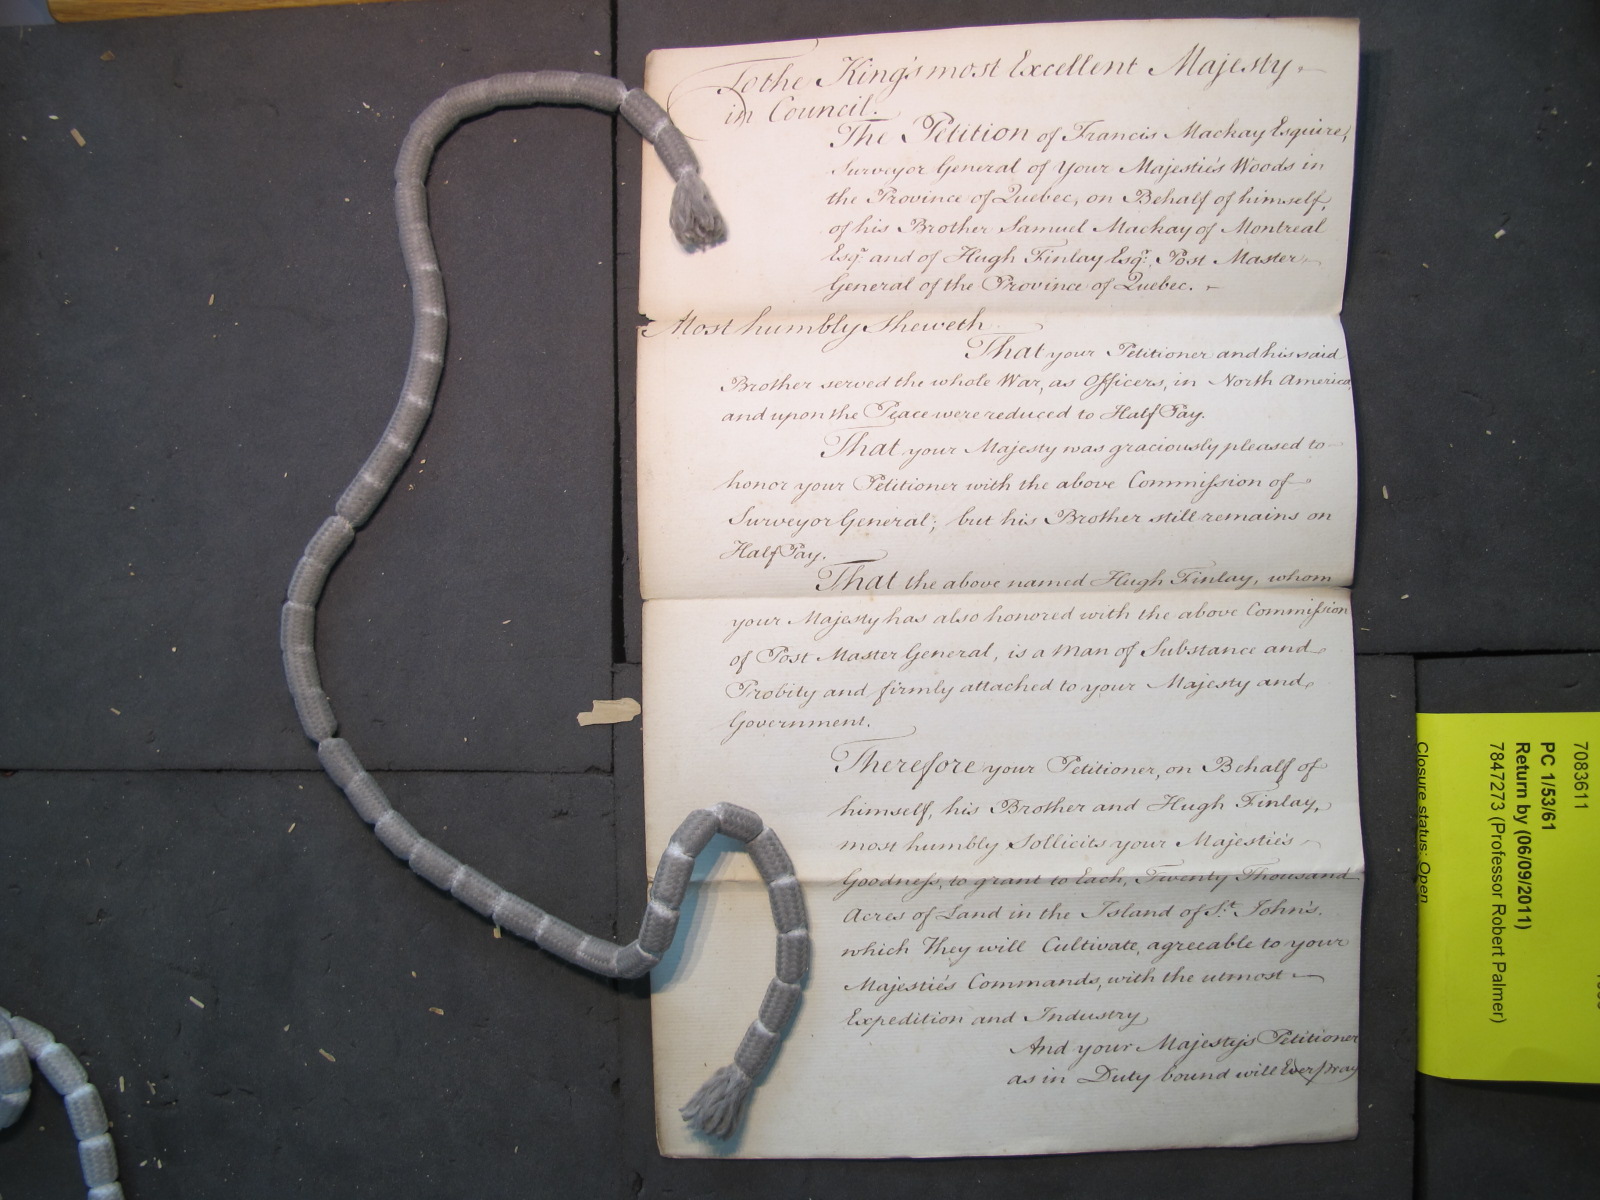 To the King's most Excellent Majesty
in Council.
The Petition of Francis Mackay Esquire,
Surveyor General of Your Majestie's Woods in
the Province of Quebec, on Behalf of himself,
of his Brother Samuel Mackay of Montreal
Esqr. and of Hugh Finlay Esqr. Post Master
General of the Province of Quebec.
Most humbly Sheweth
That your Petitioner and his said
Brother served the whole War, as Officers, in North America,
and upon the Peace were reduced to Half Pay.
That your Majesty was graciously pleased to
honor your Petitioner with the above Commission of
Surveyor General; but his Brother still remains on
Half Pay.
That the above named Hugh Finlay, whom
your Majesty has also honored with the above Commission
of Post Master General, is a Man of Substance and
Probity and firmly attached to your Majesty and
Government.
Therefore your Petitioner, on Behalf of
himself, his Brother and Hugh Finlay,
most humbly Sollicits your Majestie's
Goodness, to grant to Each, Twenty Thousand
Acres of Land in the Island of St. John's.
which They will Cultivate, agreeable to your
Majestie's Commands, with the utmost
Expedition and Industry
And your Majesty's Petitioner
as in Duty bound will Ever pray
7083611
PC 1/53/61
Return by (06/09/2011)
7847273 (Professor Robert Palmer)
Closure status: Open